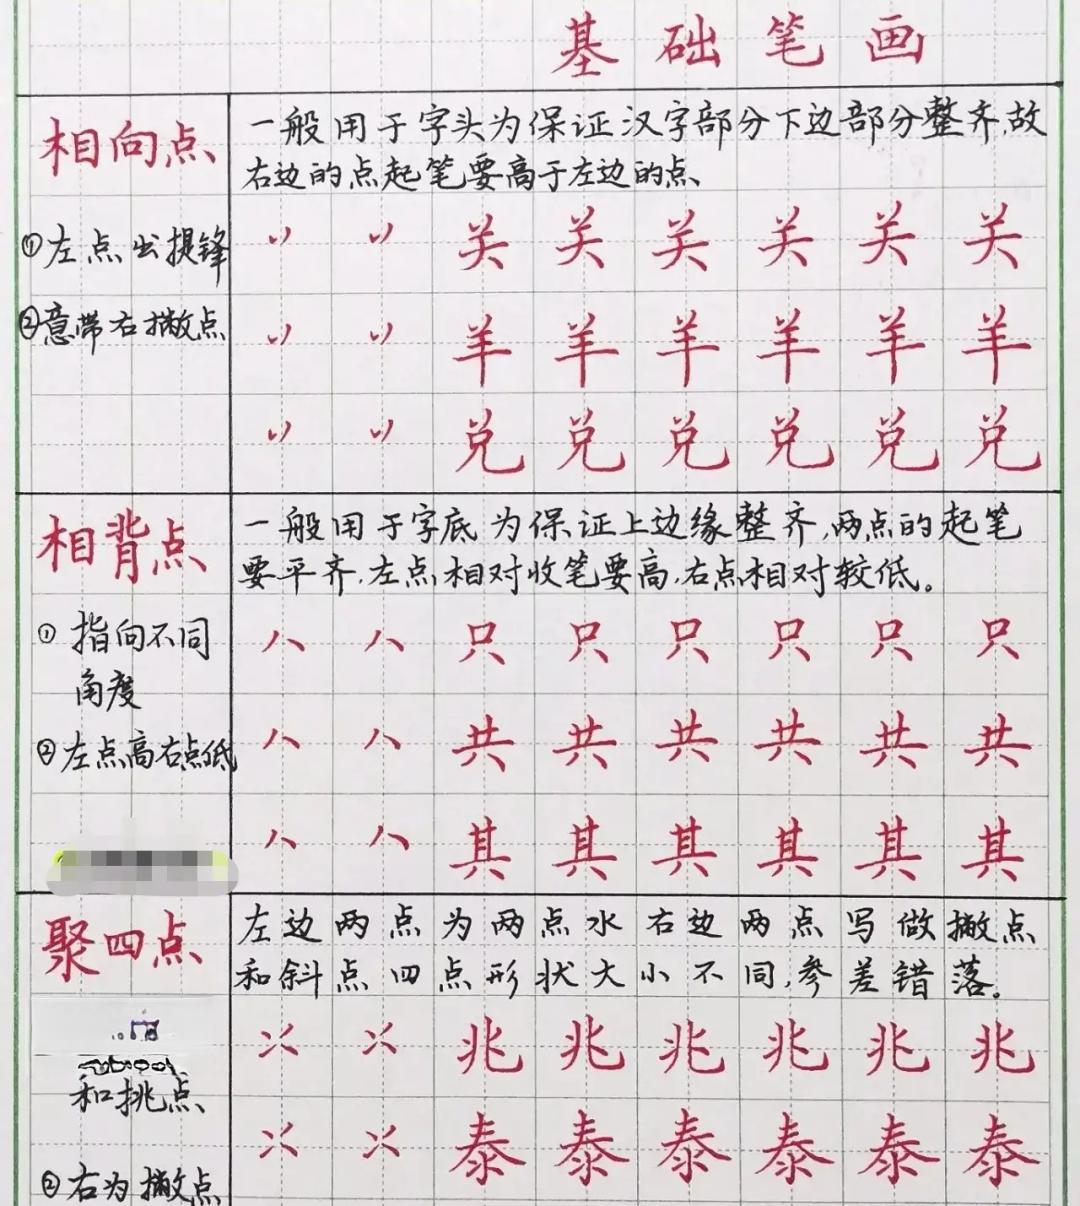 基础笔画
相向点
一般用于字头为保证汉字部分下边部分整齐,故
右边的点起笔要高于左边的点、
①左点出提锋
②意带右撇点
关关关关关关
羊羊羊羊羊羊
兑兑兑兑兑兑
相背点
一般用于字底为保证上边缘整齐,两点的起笔
要平齐,左点相对收笔要高,右点相对较低。
①指向不同
角度
②左点高右点低
只只只只只只
共共共共共共
其其其其其其
聚四点
左边两点为两点水右边两点写做撇点
和斜点四点形状大小不同,参差错落。
和挑点
②右为撇点
兆兆兆兆兆兆
泰泰泰泰泰泰